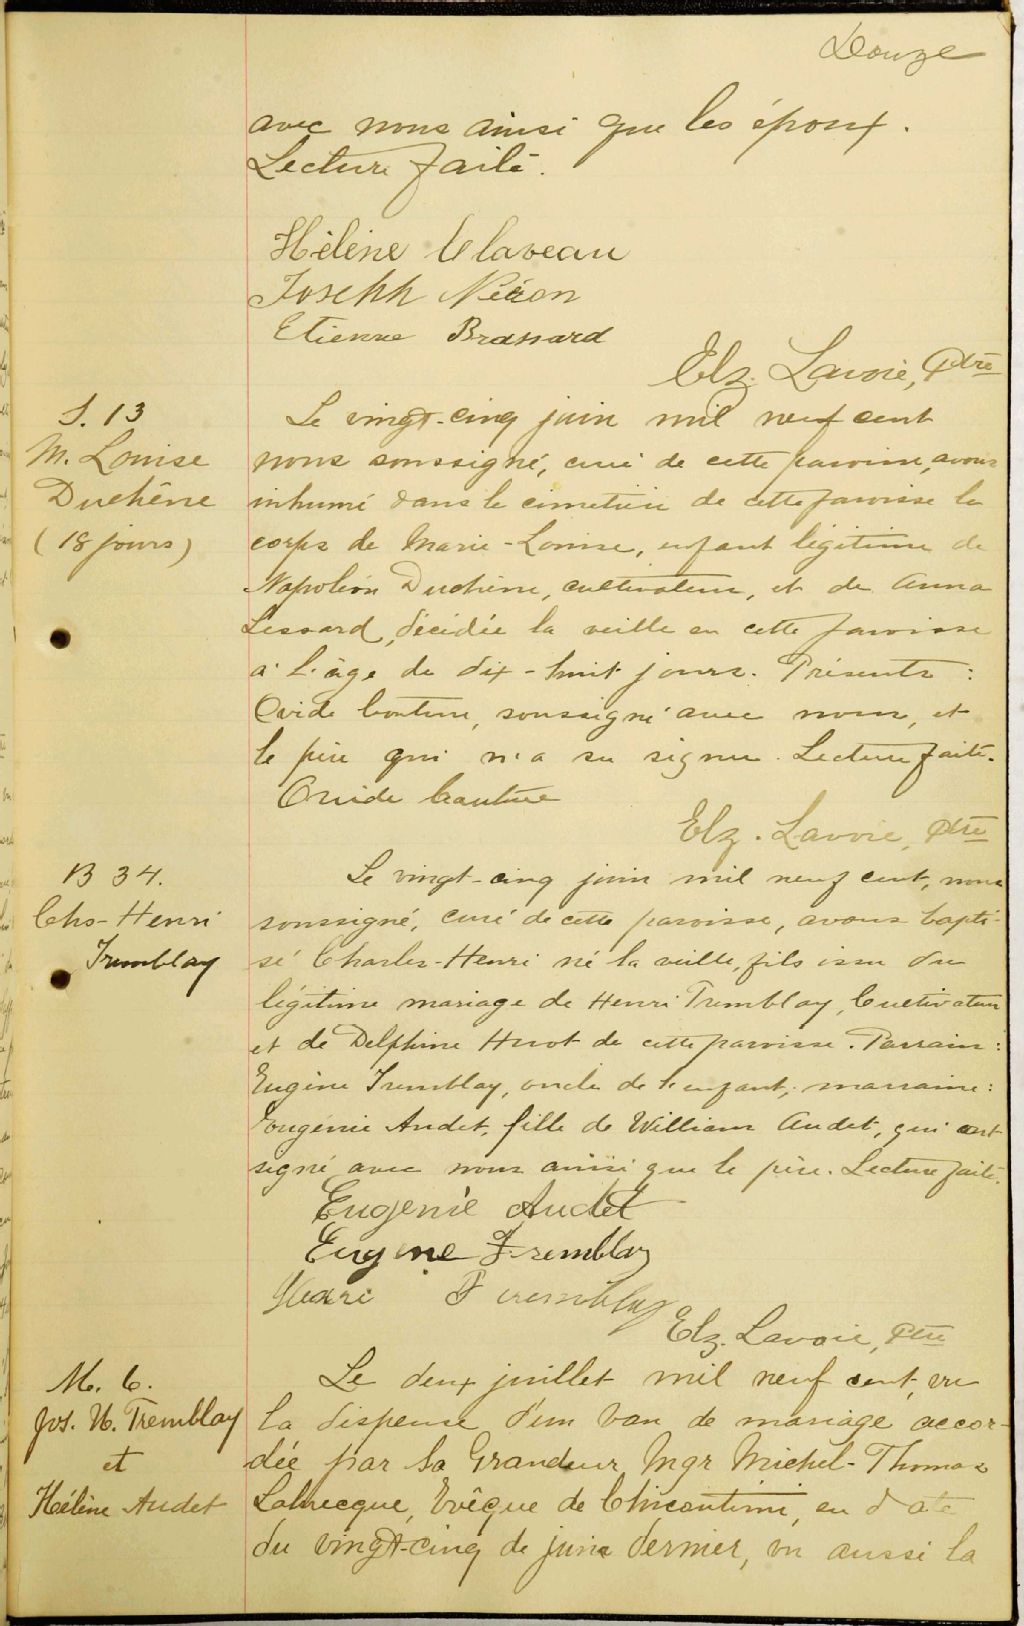 Douze
avec nous ainsi que les époux.
Lecture faite.
Hélène Claveau
Joseph Néron
Etienne Brassard
Elz. Lavoie, Ptre
S. 13
M. Louise
Duchêne
(18 jours)
Le vingt-cinq juin mil neuf cent
nous soussigné, curé de cette paroisse, avons
inhumé dans le cimetière de cette paroisse le
corps de Marie-Louise, enfant légitime de
Napoléon Duchêne, cultivateur, et de Anna
Lessard, décédée la veille en cette paroisse
à l'âge de dix-huit jours. Présents :
Ovide Couture, soussigné avec nous, et
le père qui n'a su signer. Lecture faite.
Ovide Couture
Elz. Lavoie, Ptre
B 34.
Chs-Henri
Tremblay
Le vingt-cinq juin mil neuf cent, nous
soussigné, curé de cette paroisse, avons bapti-
sé Charles-Henri né la veille, fils issu du
légitime mariage de Henri Tremblay, Cultivateur
et de Delphine Huot de cette paroisse. Parrain :
Eugène Tremblay, oncle de l'enfant; marraine :
Eugénie Audet, fille de William Audet, qui ont
signé avec nous ainsi que le père. Lecture faite.
Eugenie Audet
Eugene Tremblay
Henri Tremblay
Elz. Lavoie, Ptre
M. 6.
Jos. N. Tremblay
et
Hélène Audet
Le deux juillet mil neuf cent, vu
la dispense d'un ban de mariage accor-
dée par Sa Grandeur Mgr Michel-Thomas
Labrecque, Evêque de Chicoutimi, en date
du vingt-cinq de juin dernier, vu aussi la